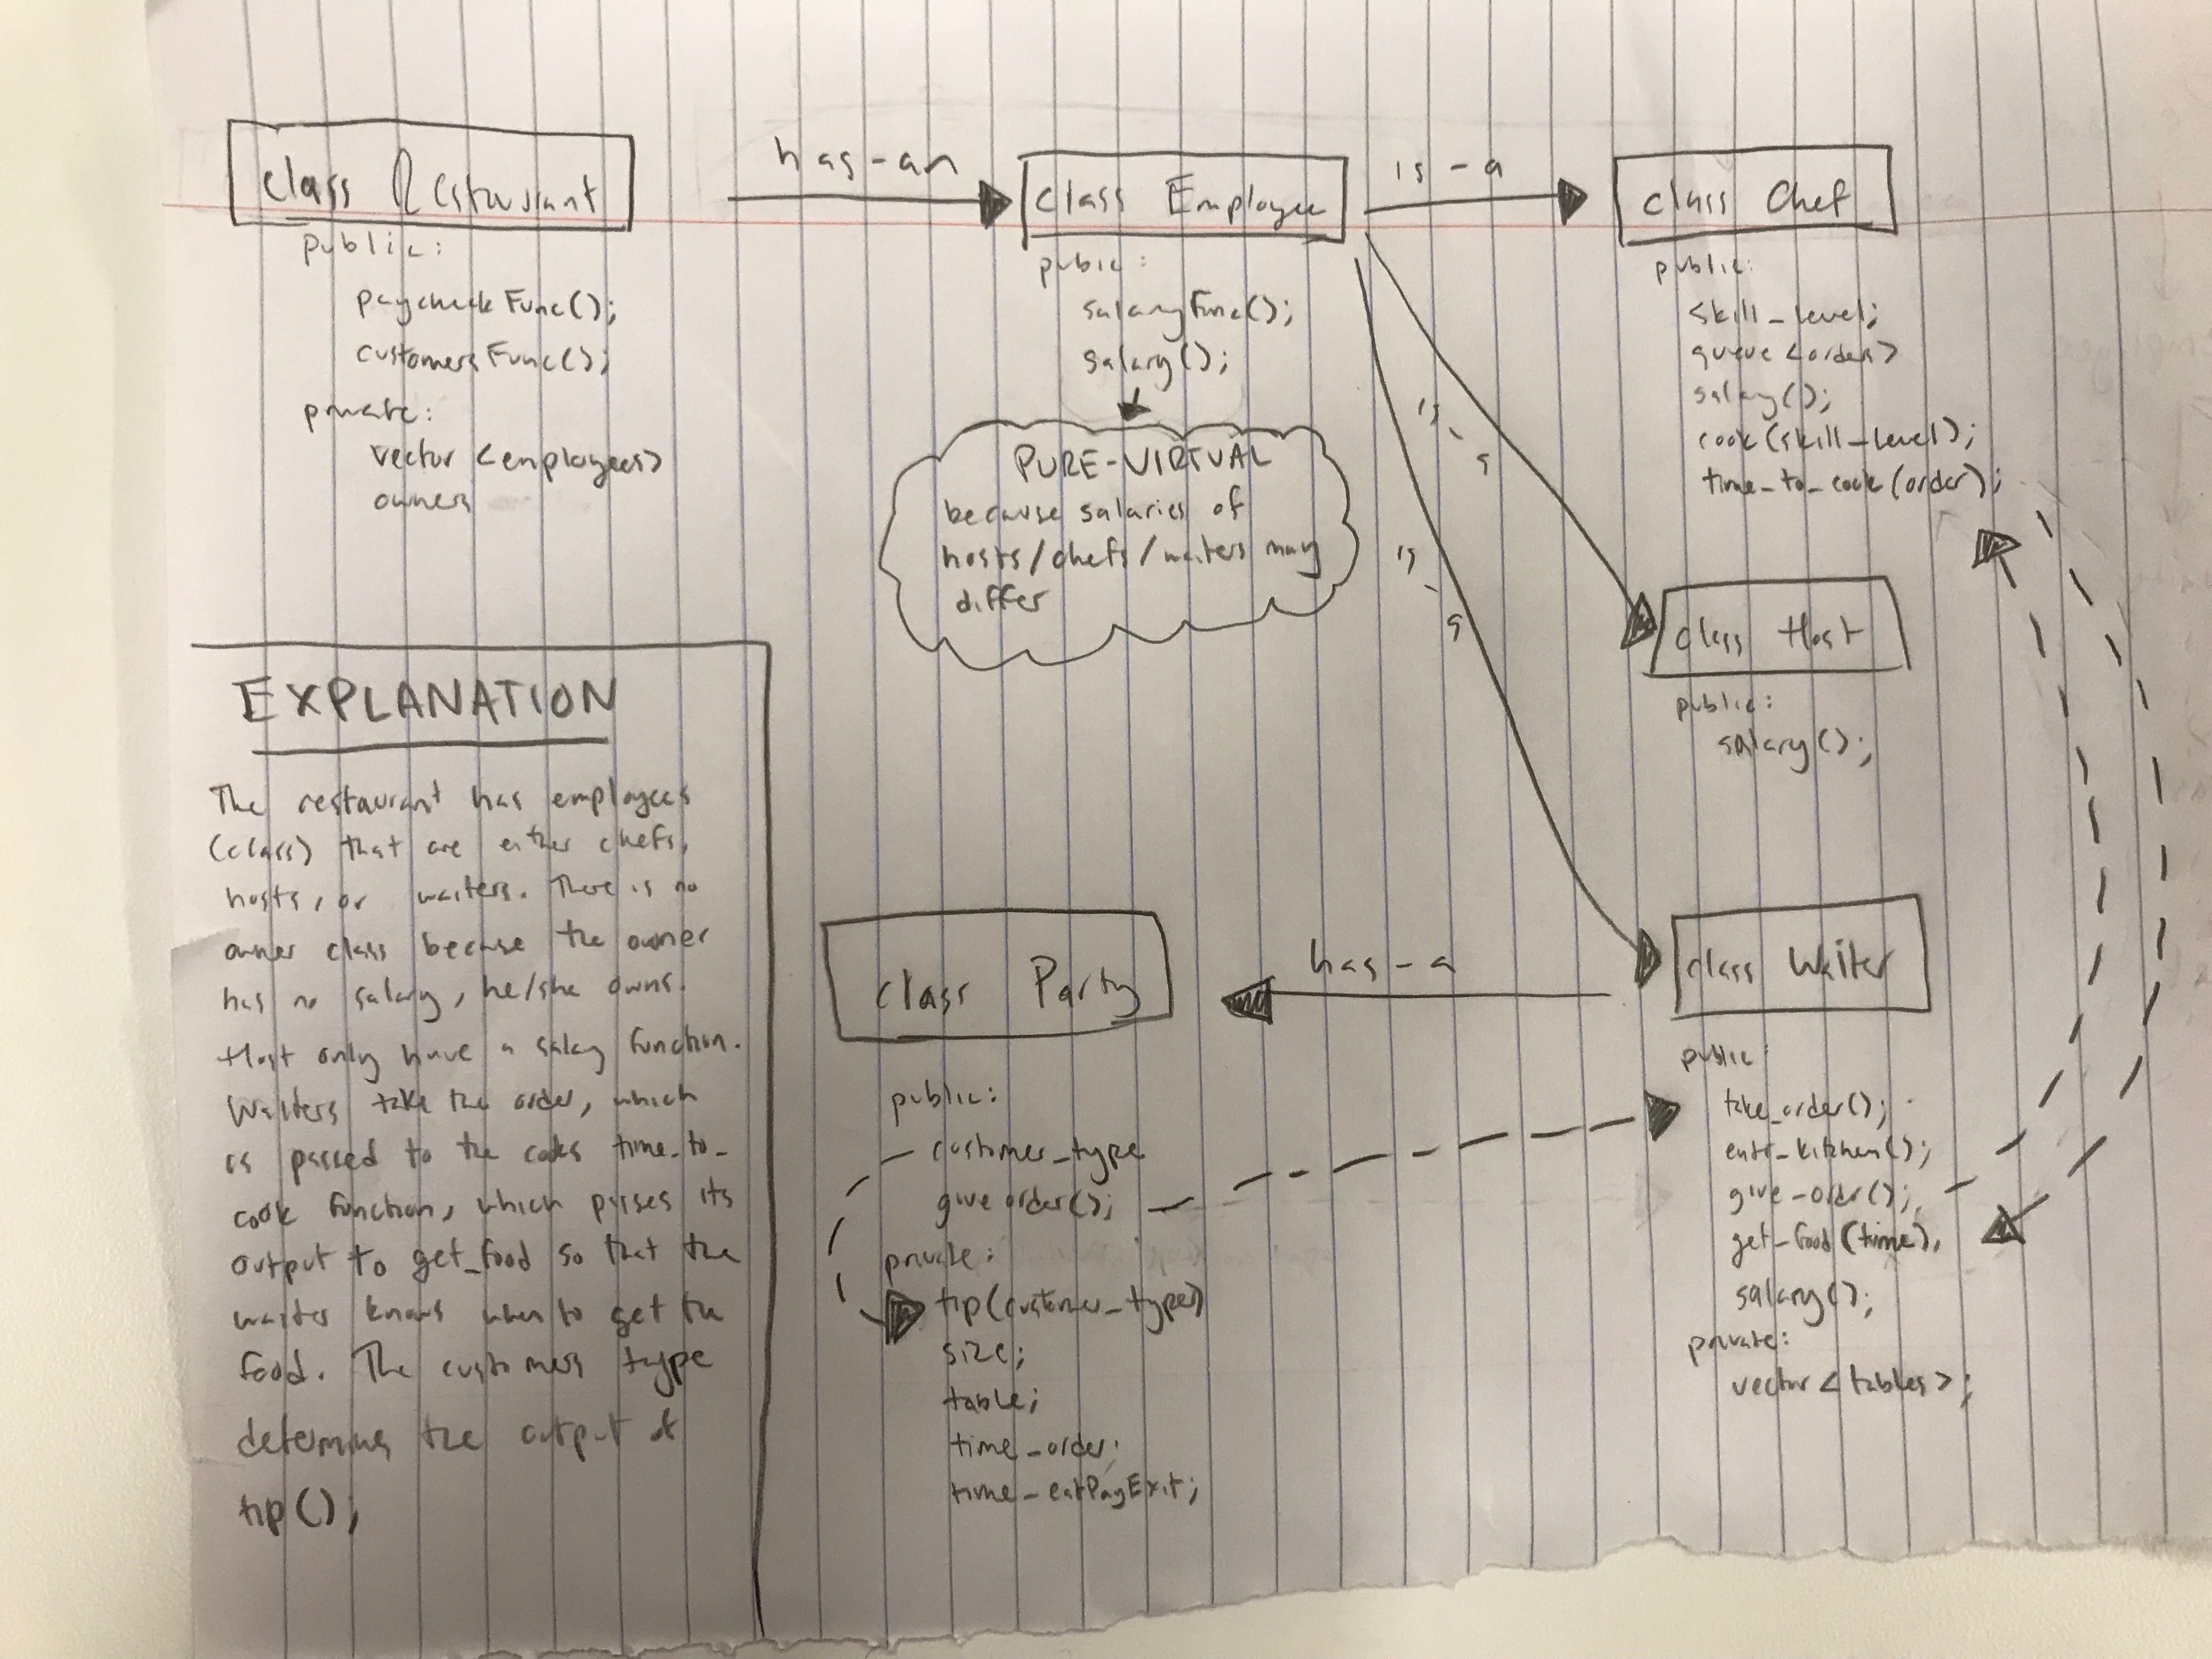 class Restaurant
public:
paycheckFunc();
customersFunc();
private:
vector <employees>
owners
has-an
class Employee
public:
salaryFunc();
salary();
PURE-VIRTUAL
because salaries of
hosts/chefs/waiters may
differ
is-a
is-a
is-a
class Chef
public:
skill_level;
queue <orders>
salary();
cook(skill_level);
time_to_cook(order);
class Host
public:
salary();
class Waiter
public:
take_order();
enter_kitchen();
give-order();
get_food(time);
salary();
private:
vector <tables>;
has-a
class Party
public:
customer_type
giveorder();
private:
tip(customer_type)
size;
table;
time_order;
time_eatPayExit;
EXPLANATION
The restaurant has employees
(class) that are either chefs,
hosts, or waiters. There is no
owner class because the owner
has no salary, he/she owns.
Host only have a salary function.
Waiters take the order, which
is passed to the cooks time_to_
cook function, which passes its
output to get_food so that the
waiter knows when to get the
food. The customers type
determines the output of
tip();